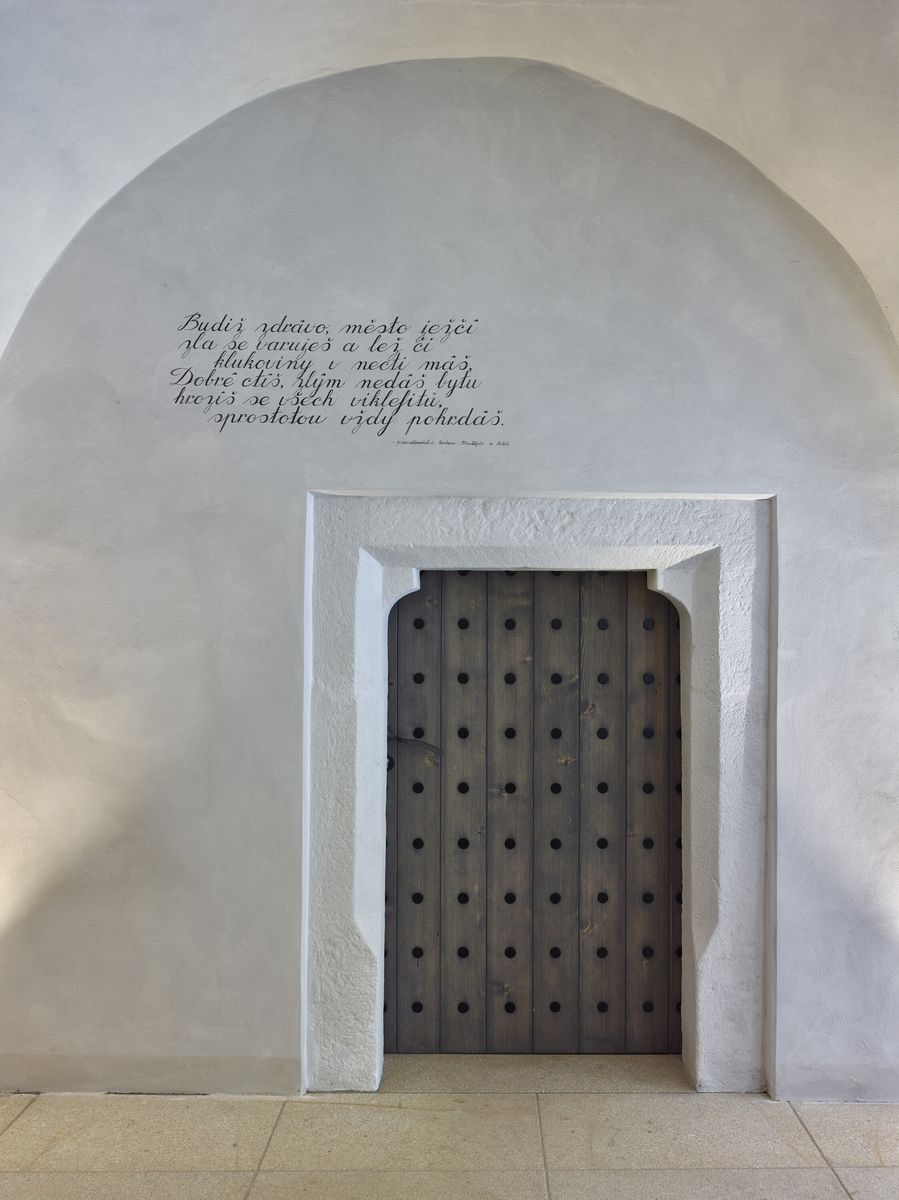 Budiž zdrávo, město ježčí
zla se varuješ a lež či
klukoviny v necti máš,
Dobré ctíš, zlým nedáš bytu
hrozíš se všech viklefitů,
sprostotou vždy pohrdáš.